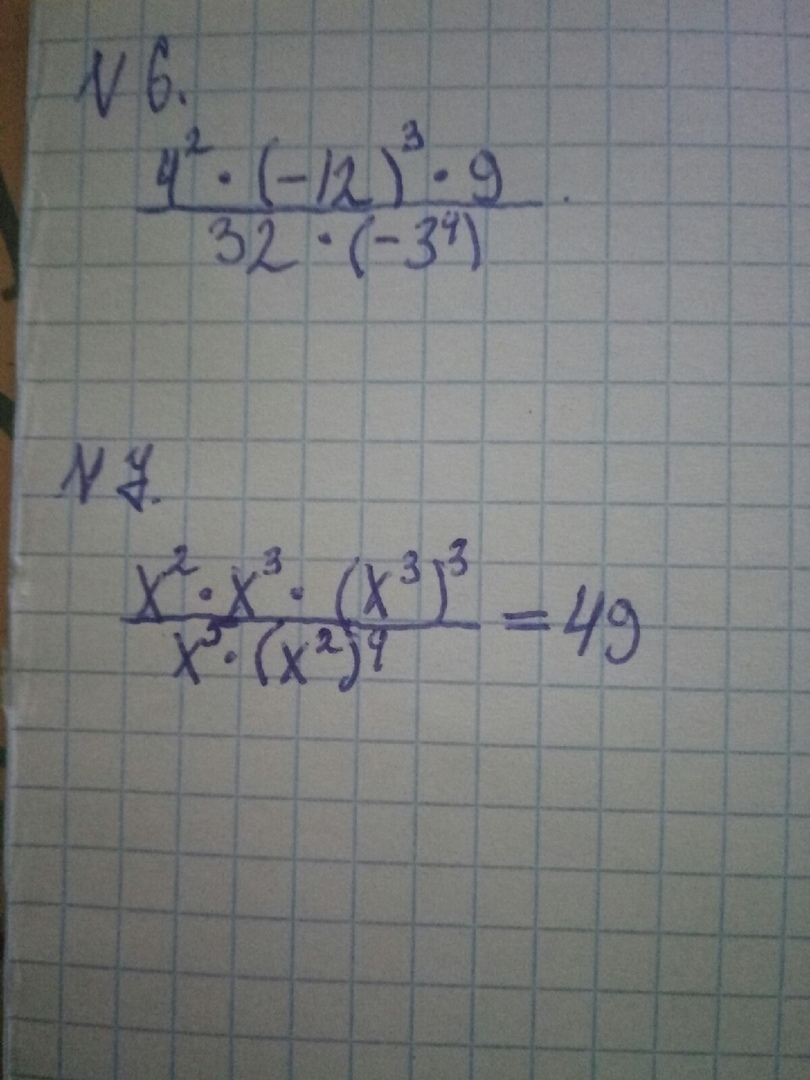 N 6.
4² · (-12)³ · 9
32 · (-3⁴)
N 7.
x² · x³ · (x³)³
x⁵ · (x²)⁴ = 49